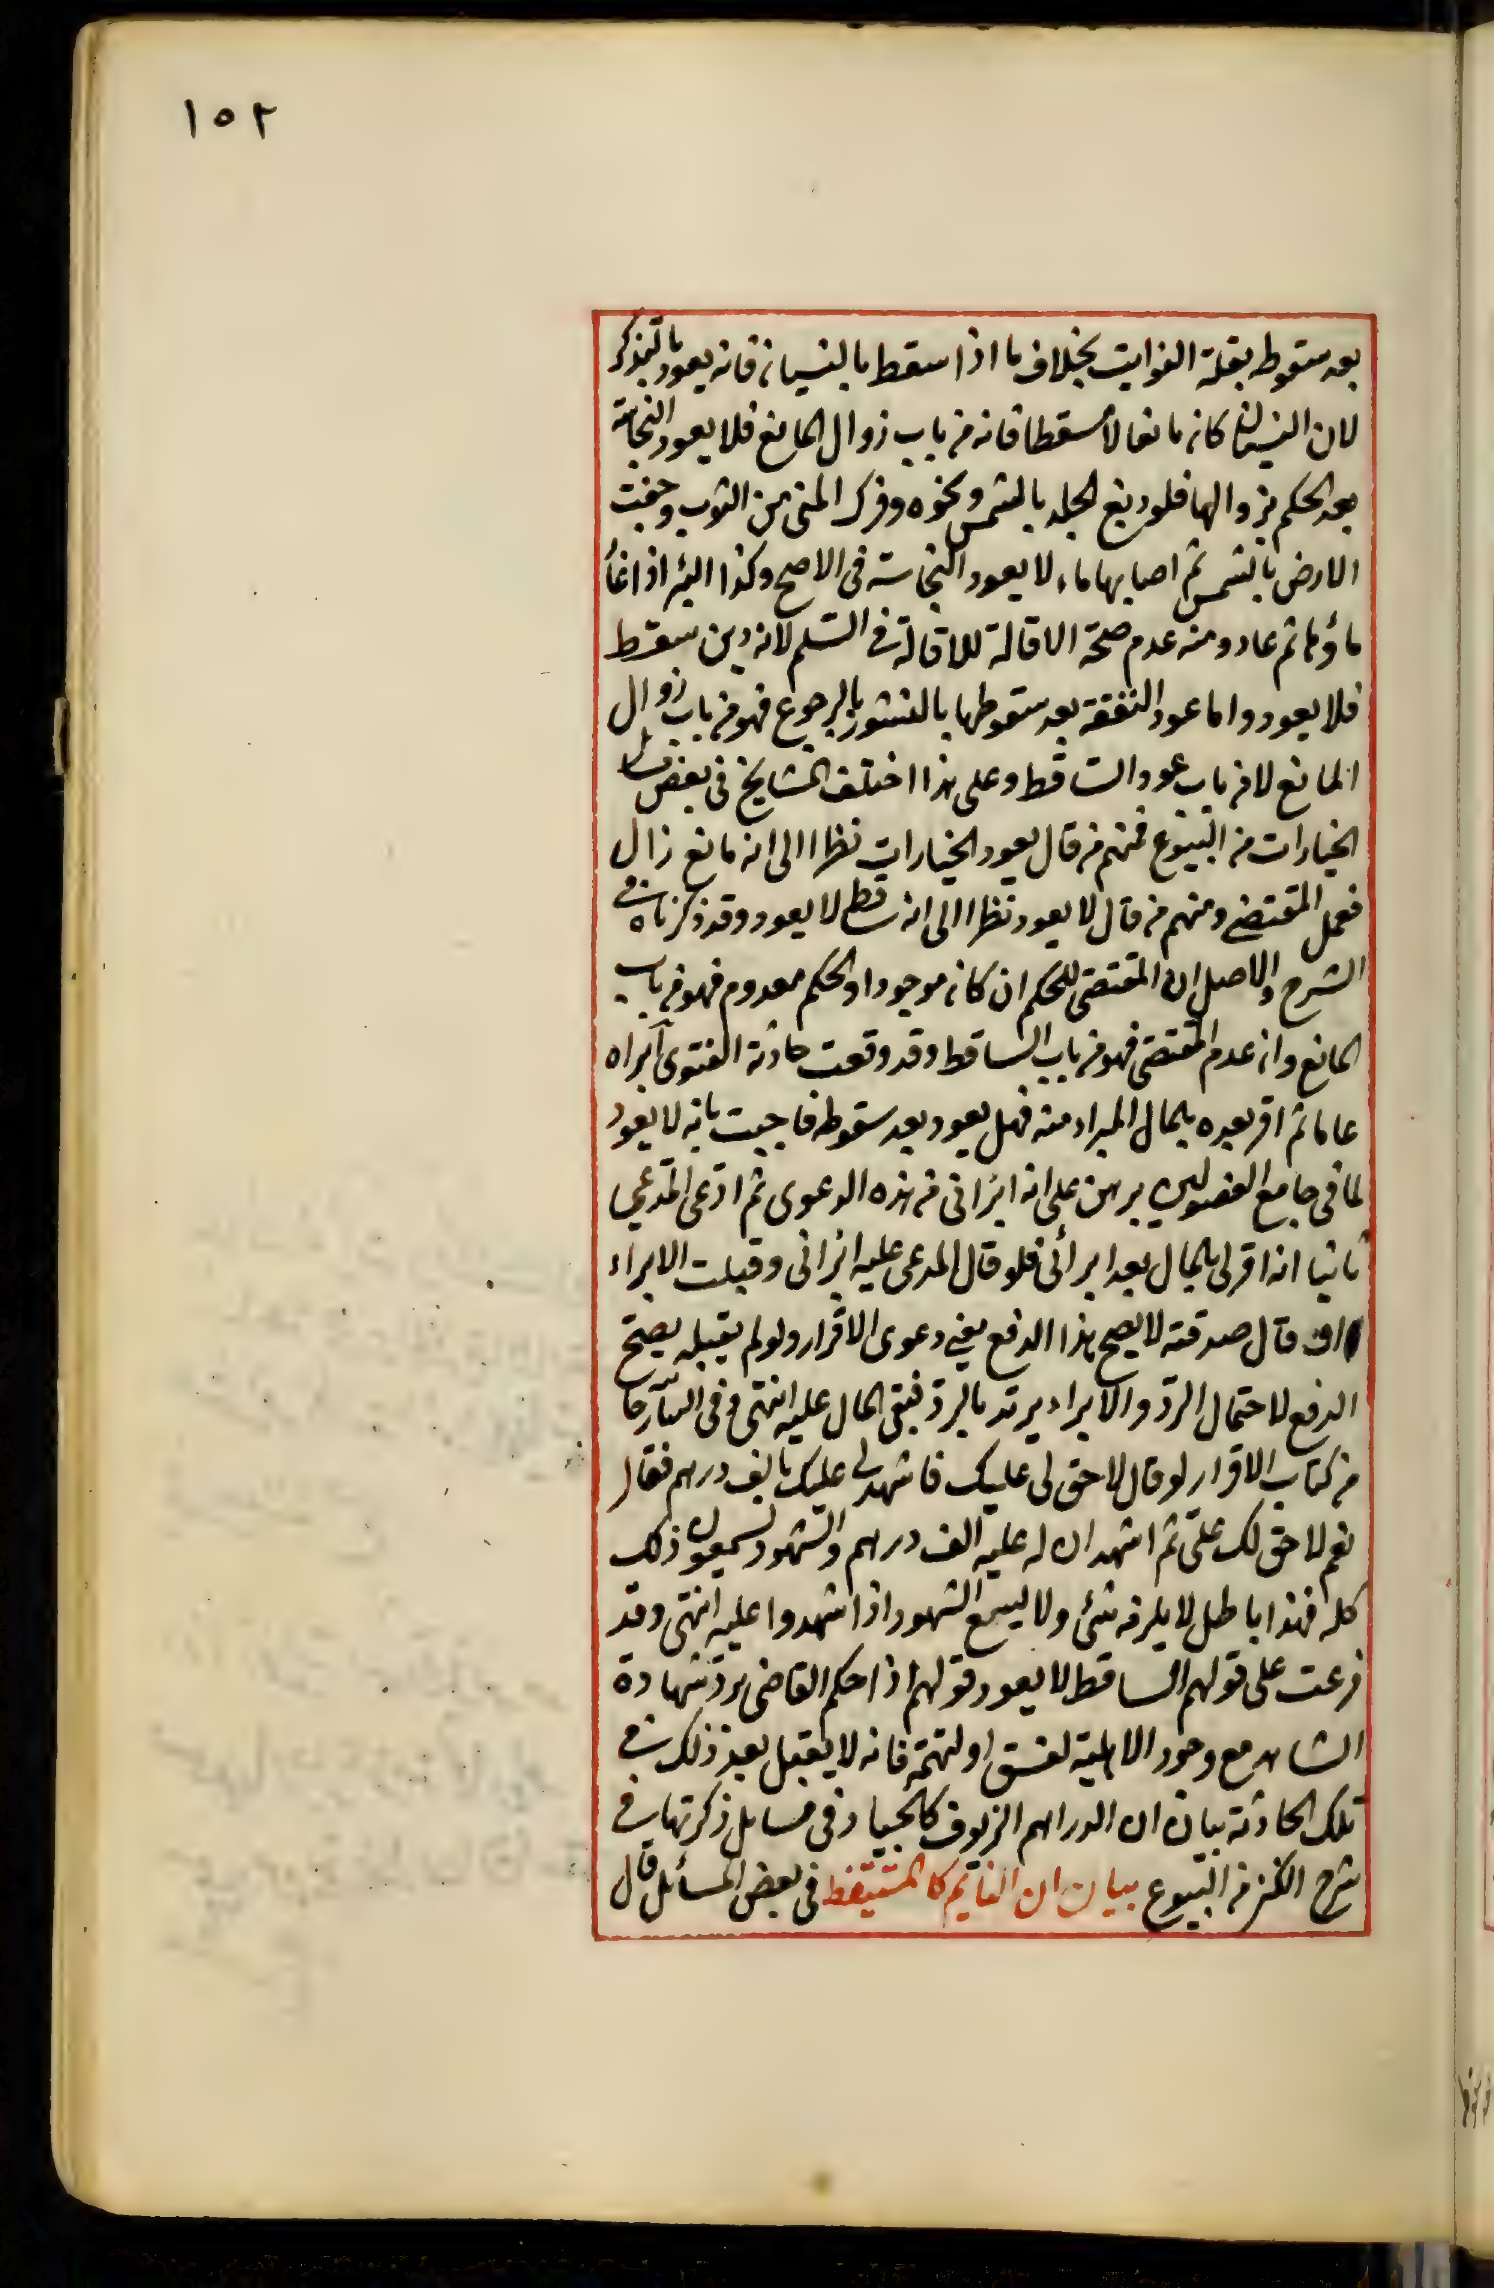 ١٥٢
بعد سقوطه بقلة الفوايت بخلاف ما اذا سقط بالنسيان فانه يعود بالتذكر
لان النسيان كان مانعا لا مسقطا فانه من باب زوال المانع فلا يعود النجاسة
بعد الحكم بزوالها فلو دبغ الجلد بالشمس ونحوه وفرك المني من الثوب وجفت
الارض بالشمس ثم اصابها ماء لا يعود النجاسة فى الاصح وكذا البئر اذا غا
ماؤها ثم عاد ومنه عدم صحة الاقالة للاقالة فى السلم لانه دين سقط
فلا يعود واما عود النفقة بعد سقوطها بالنشوز بالرجوع فهو من باب زوال
المانع لا من باب عود الساقط وعلى هذا اختلف المشايخ فى بعض مسائل
الخيارات من البيوع فمنهم من قال يعود الخيارات نظرا الى انه مانع زال
فعمل المقتضى ومنهم من قال لا يعود نظرا الى انه ساقط لا يعود وقد ذكرناه فى
الشرح والاصل ان المقتضى للحكم ان كان موجودا والحكم معدوم فهو من باب
المانع وان عدم المقتضى فهو من باب الساقط وقد وقعت حادثة الفتوى ابراه
عاما ثم اقر بعده بالمال المبراء منه فهل يعود بعد سقوطه فاجبت بانه لا يعود
لما فى جامع الفصولين برهن على انه ابرانى من هذه الدعوى ثم ادعى المدعي
ثانيا انه اقر لى بالمال بعد ابرائى فلو قال المدعى عليه ابرانى وقبلت الابراء
او قال صدقته لا يصح هذا الدفع يعني دعوى الاقرار ولو لم يقبله يصح
الدفع لاحتمال الرد والابراء يرتد بالرد فبقى المال عليه انتهى وفى التتارخا
من كتاب الاقرار لو قال لا حق لى عليك فاشهد لى عليك بالف درهم فقال
نعم لا حق لك على ثم اشهد ان له عليه الف درهم والشهود يسمعون ذلك
كله فهذا باطل لا يلزمه شئ ولا ليسع الشهود اذا شهدوا عليه انتهى وقد
فرعت على قولهم الساقط لا يعود قولهم اذا حكم القاضى برد شهادة
الشاهد مع وجود الاهلية لفسق او لتهمة فانه لا يقبل بعد ذلك فى
تلك الحادثة بيان ان الدراهم الزيوف كالجياد فى مسايل ذكرتها فى
شرح الكنز من البيوع بيان ان النايم كالمستيقظ فى بعض المسائل قال